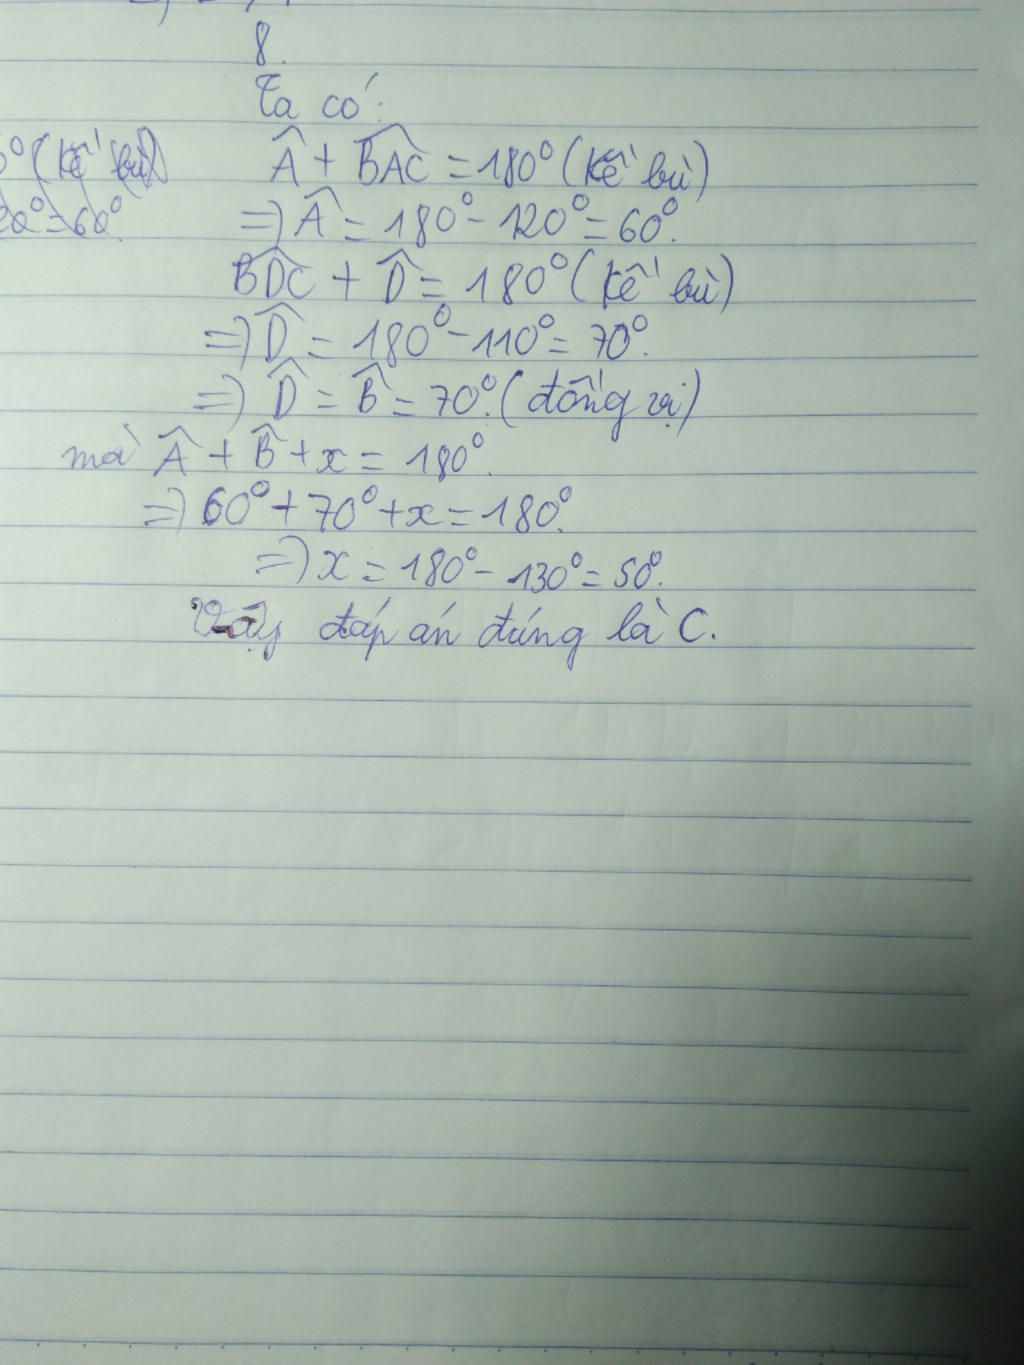 8.
Ta có:
0° (kề bù)
Â + B̂AC = 180° (kề bù)
20° = 60°.
=) Â = 180° - 120° = 60°.
B̂DC + D̂ = 180° (kề bù)
=) D̂ = 180° - 110° = 70°.
=) D̂ = B̂ = 70°. (đồng vị)
mà Â + B̂ + x = 180°.
=) 60° + 70° + x = 180°.
=) x = 180° - 130° = 50°.
Vậy đáp án đúng là C.